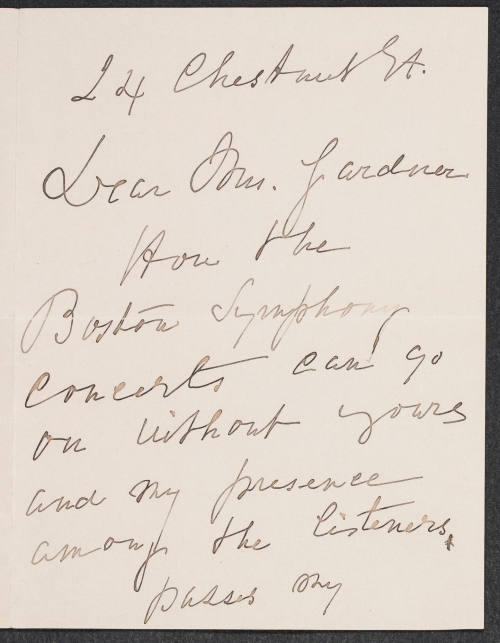 24 Chestnut St.
Dear Mrs. Gardner
How the
Boston Symphony
concerts can go
on without yours
and my presence
among the listeners,
passes my